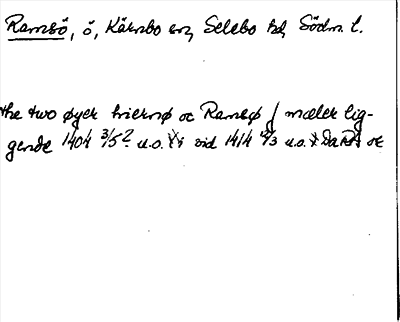 Ramsö, ö, Kärnbo sn, Selebo hd, Södm. l.
the two øyer triernø oc Ramsø j mæler lig-
gende 1404 3/5 ? u.o. vid 1414 12/3 u.o. DaRA oc